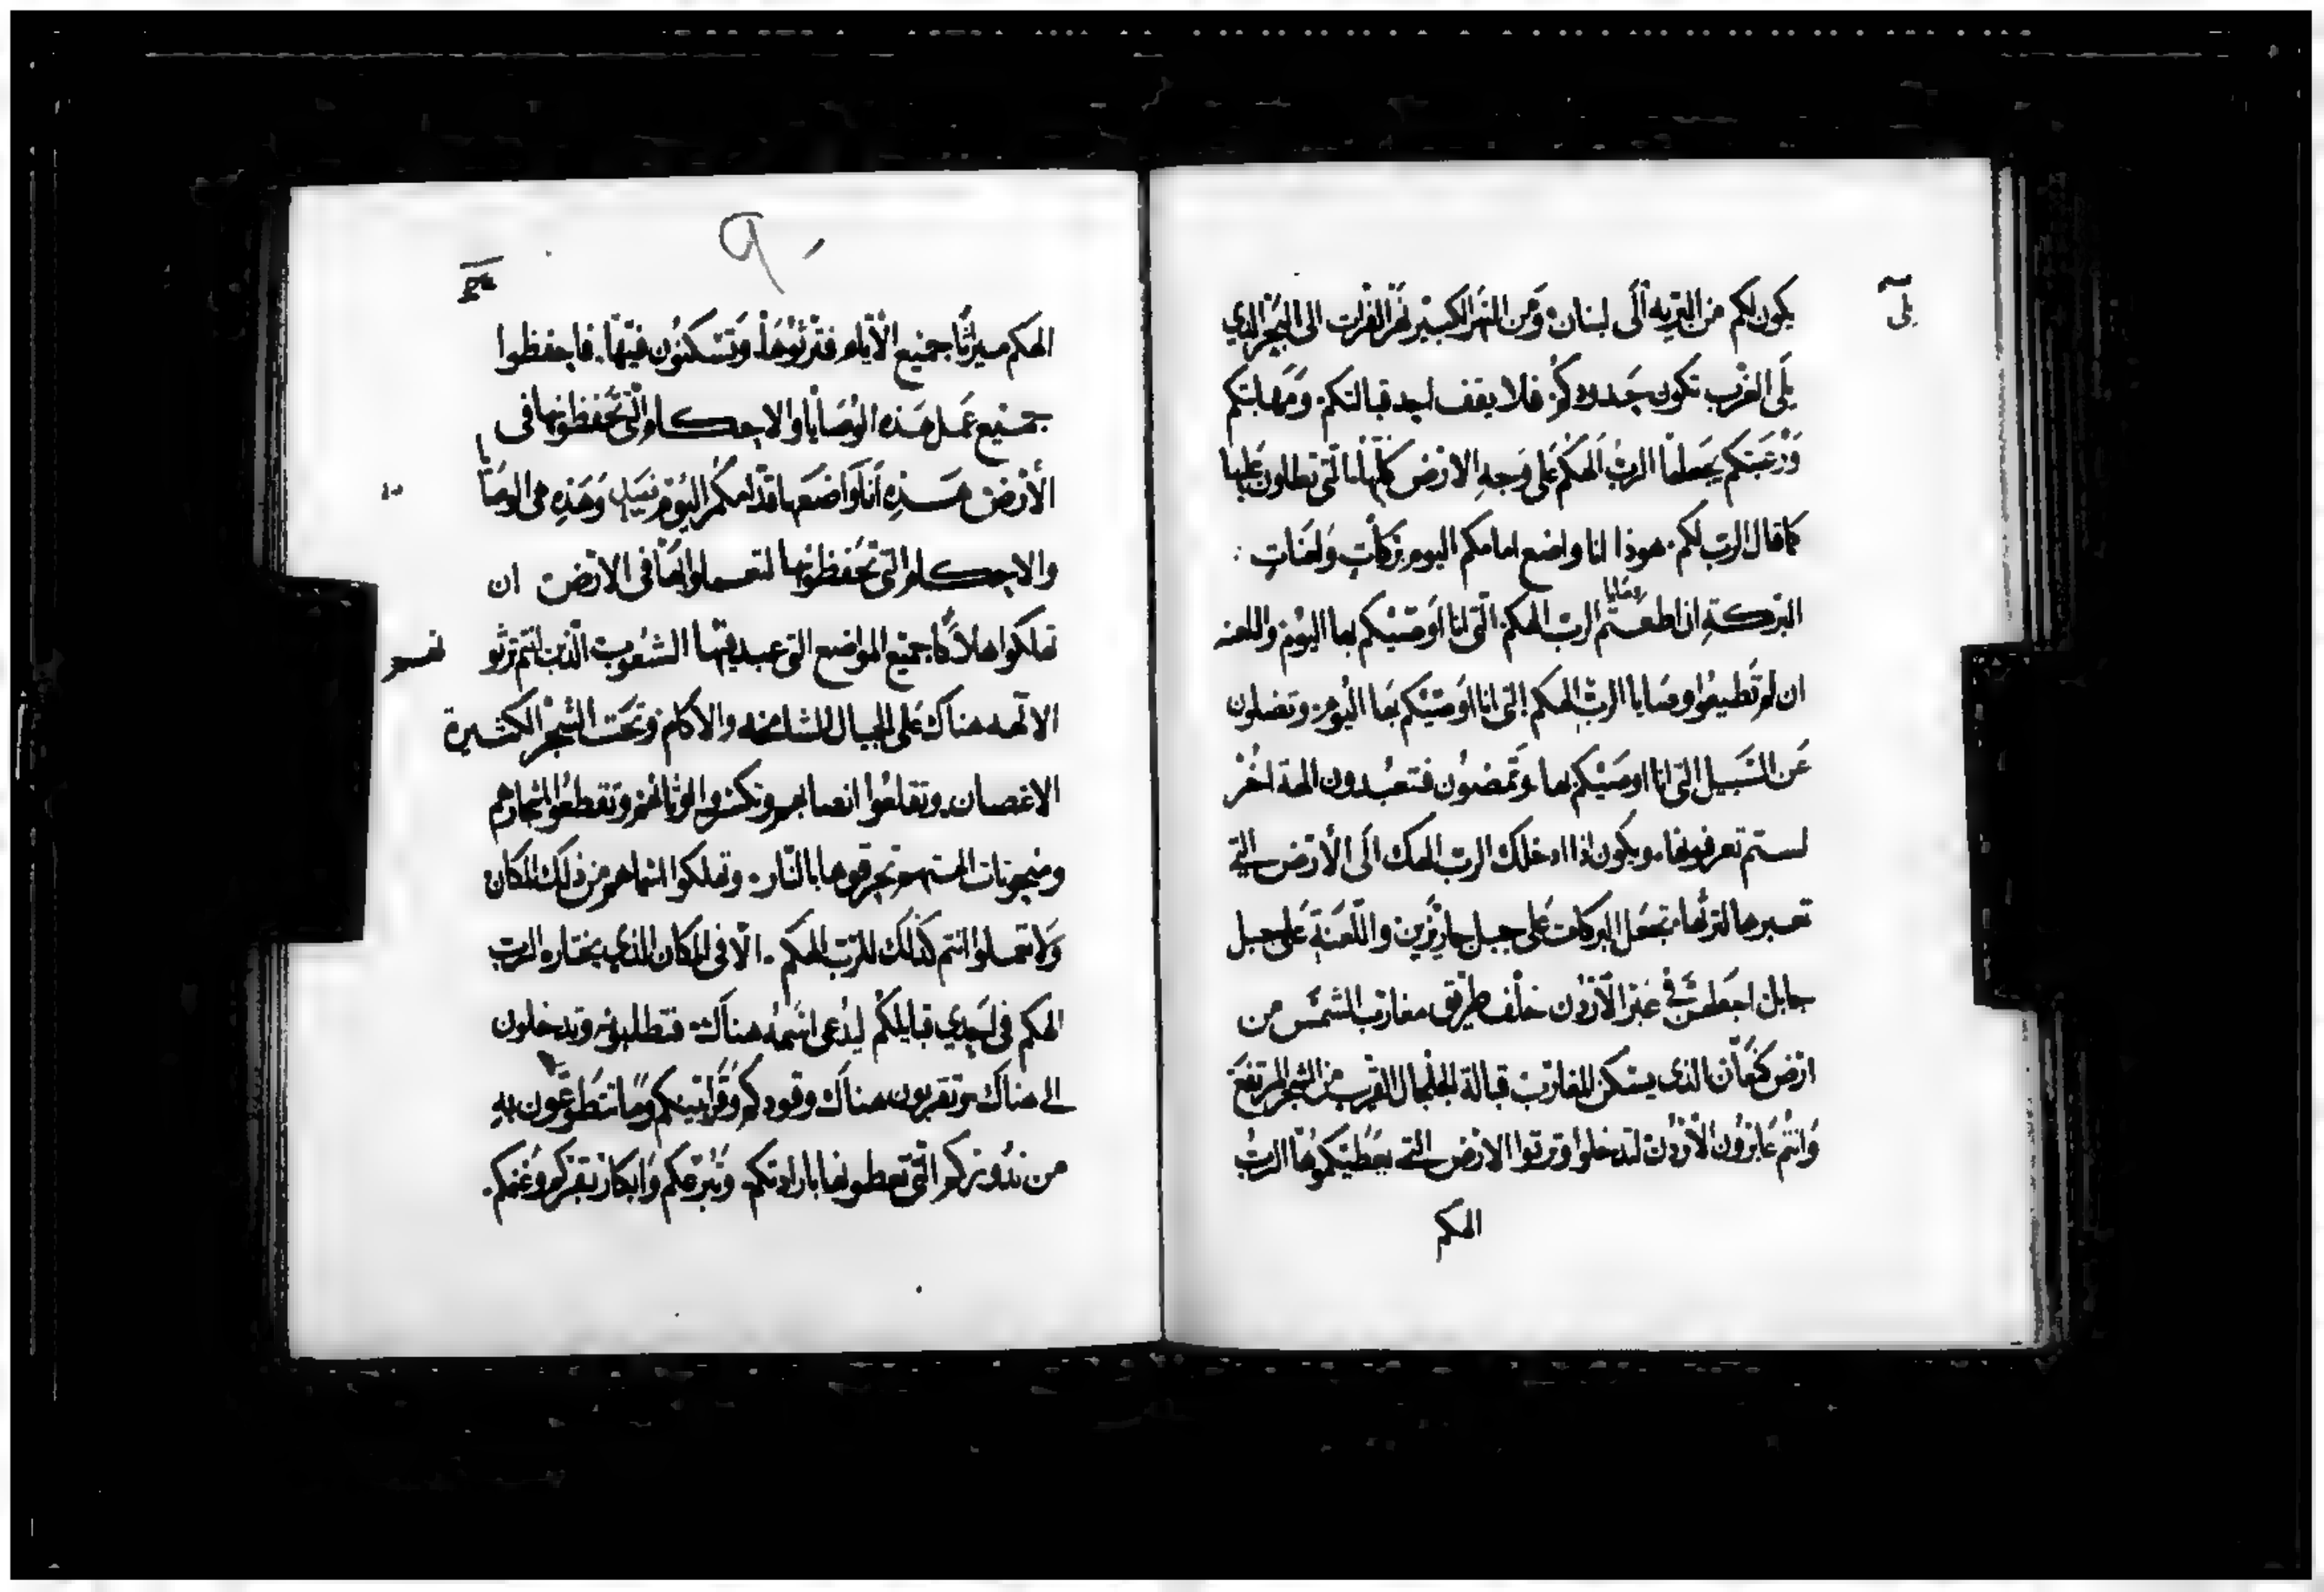 يلى
يكون لكم من البريه الى لبنان ومن النهر الكبير نهر الفرات الى البحر الذي
يلى الغرب تكون حدودكم فلا يقف احد قبالتكم ومهابتكم
ورعبتكم يجعلها الرب الهكم على وجه الارض كلها التى تطاون عليها
كما قال الرب لكم هوذا انا واضع امامكم اليوم بركات ولعنات
البركة ان اطعتم وصايا الرب الهكم التى انا اوصيكم بها اليوم واللعنه
ان لم تطيعوا وصايا الرب الهكم التى انا اوصيكم بها اليوم وتضلون
عن السبيل التى انا اوصيكم بها وتمضون فتعبدون الهة اخر
لستم تعرفونها ويكون اذا ادخلك الرب الهك الى الارض التي
تعبرها لترثها تجعل البركات على جبل جاريزين واللعنة على جبل
جابل في عبر الاردن خلف طريق مغارب الشمس من
ارض كنعان الذى يسكن المغارب قبالة الجلجال القرب من الشجر المرتفع
وانتم عابرون الاردن لتدخلوا وترثوا الارض التي يعطيكموها الرب
الهكم
٩
الهكم ميراثا جميع الايام فترثوها وتسكنون فيها فاحفظوا
جميع عمل هذه الوصايا والاحكام التى تحفظونها فى
الأرض هذه أنا واضعها قدامكم اليوم وهذه هى الوصايا
والاحكام التى تحفظونها لتعملوا بها فى الارض ان
تهلكوا هلاكا جميع المواضع التى عبد فيها الشعوب الذين انتم ترثو
الالهه هناك على الجبال الشامخه والاكام وتحت الشجر الكثيرة
الاغصان وتقلعوا انصابهم وتكسروا اوثانهم وتقطعوا اشجارهم
ومنحوتات الهتهم تحرقوها بالنار وتهلكوا اسماهم من ذلك المكان
ولا تعملوا انتم كذلك للرب الهكم الا فى المكان الذي يختاره الرب
الهكم فى احدي قبايلكم ليدعى اسمه هناك فتطلبونه وتدخلون
الى هناك وتقربون هناك وقودكم وقرابينكم وما تتطوعون به
من نذوركم التى تعطونها بارادتكم وتبرعكم وابكار بقركم وغنمكم